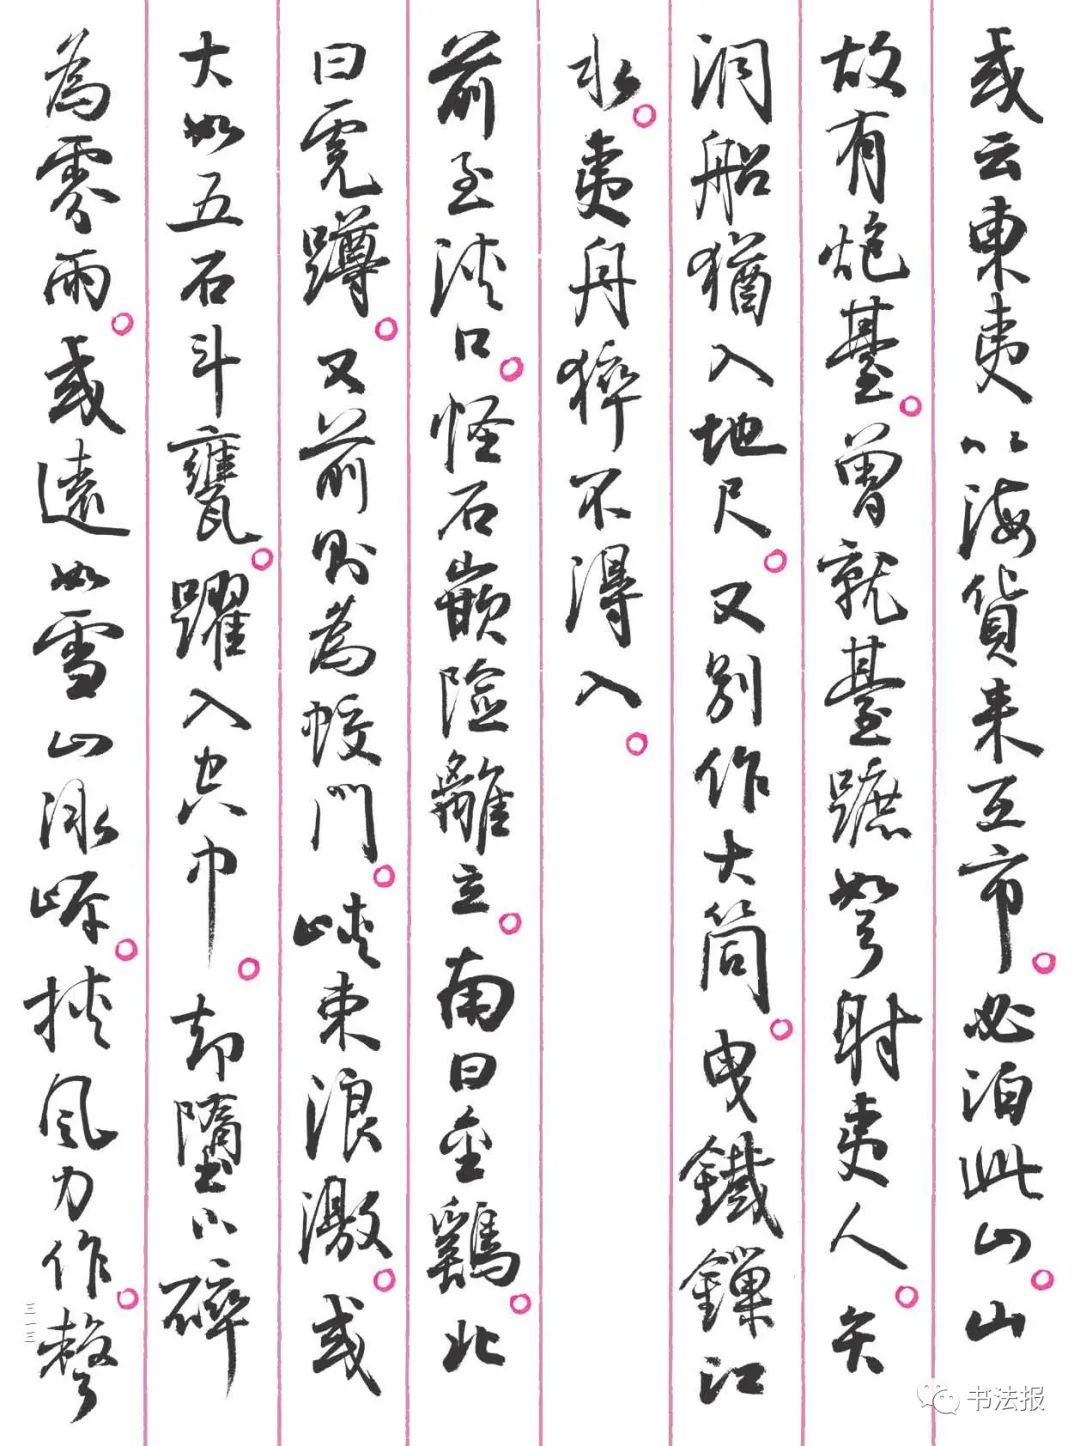 或云東夷以海貨来互市。必泊此山。山
故有炮臺。曾就臺蹠弩射夷人。矢
洞船猶入地尺。又別作大筒。曳鐵鏁江
水。夷舟猝不得入。
前至浹口。怪石嵌險離立。南曰金鷄。北
曰虎蹲。又前則為蛟門。峽束浪激。或
大如五石斗甕。躍入空中。却墮下碎
為零雨。或遠如雪山冰岸。挾風力作。聲
三一三
书法报